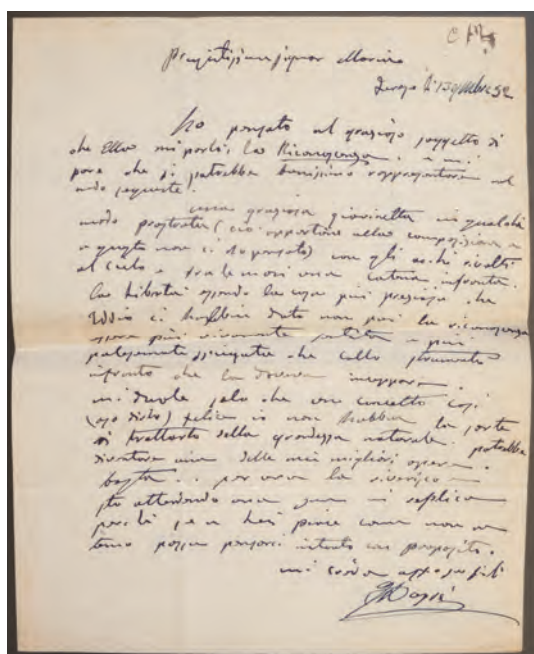 Pregiatissimo signor Marino
li 15
Ho pensato al grazioso soggetto di
che Ella mi parlò, la Riconoscenza. e mi
pare che si potrebbe benissimo rappresentare nel
modo seguente.
una graziosa giovinetta in qualche
modo prostrata (ciò opportuno alla composizione e
a questo non ci ho pensato) con gli occhi rivolti
al Cielo e tra le mani una catena infranta.
La libertà essendo la cosa più preziosa che
Iddio ci habbia dato non può la riconoscenza
essere più vivamente sentita e più
palesemente spiegata che collo strumento
infranto che la doveva inceppare.
mi duole solo che un concetto così
(oso dirlo) felice io non habbia la sorte
di trattarlo della grandezza naturale. potrebbe
diventare una delle mie migliori opere.
basta.. per ora la riverisco e
sto attendendo una sua in replica
perchè se a Lei piace come non
temo possa pensarci intanto in proposito.
mi creda